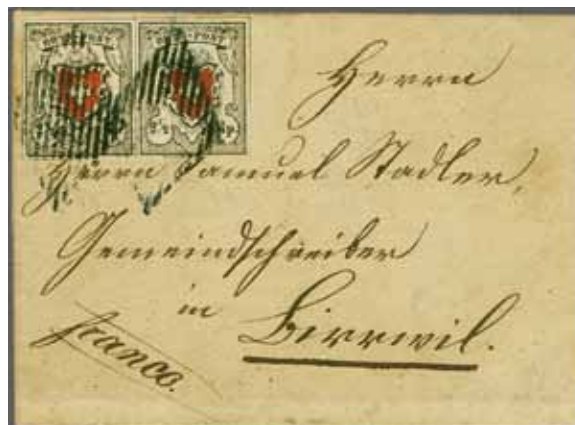 ORTS-POST
2½ Rp.
Herrn
Herrn Samuel Stadler,
Gemeindschreiber
in
Birrwil.
franco.